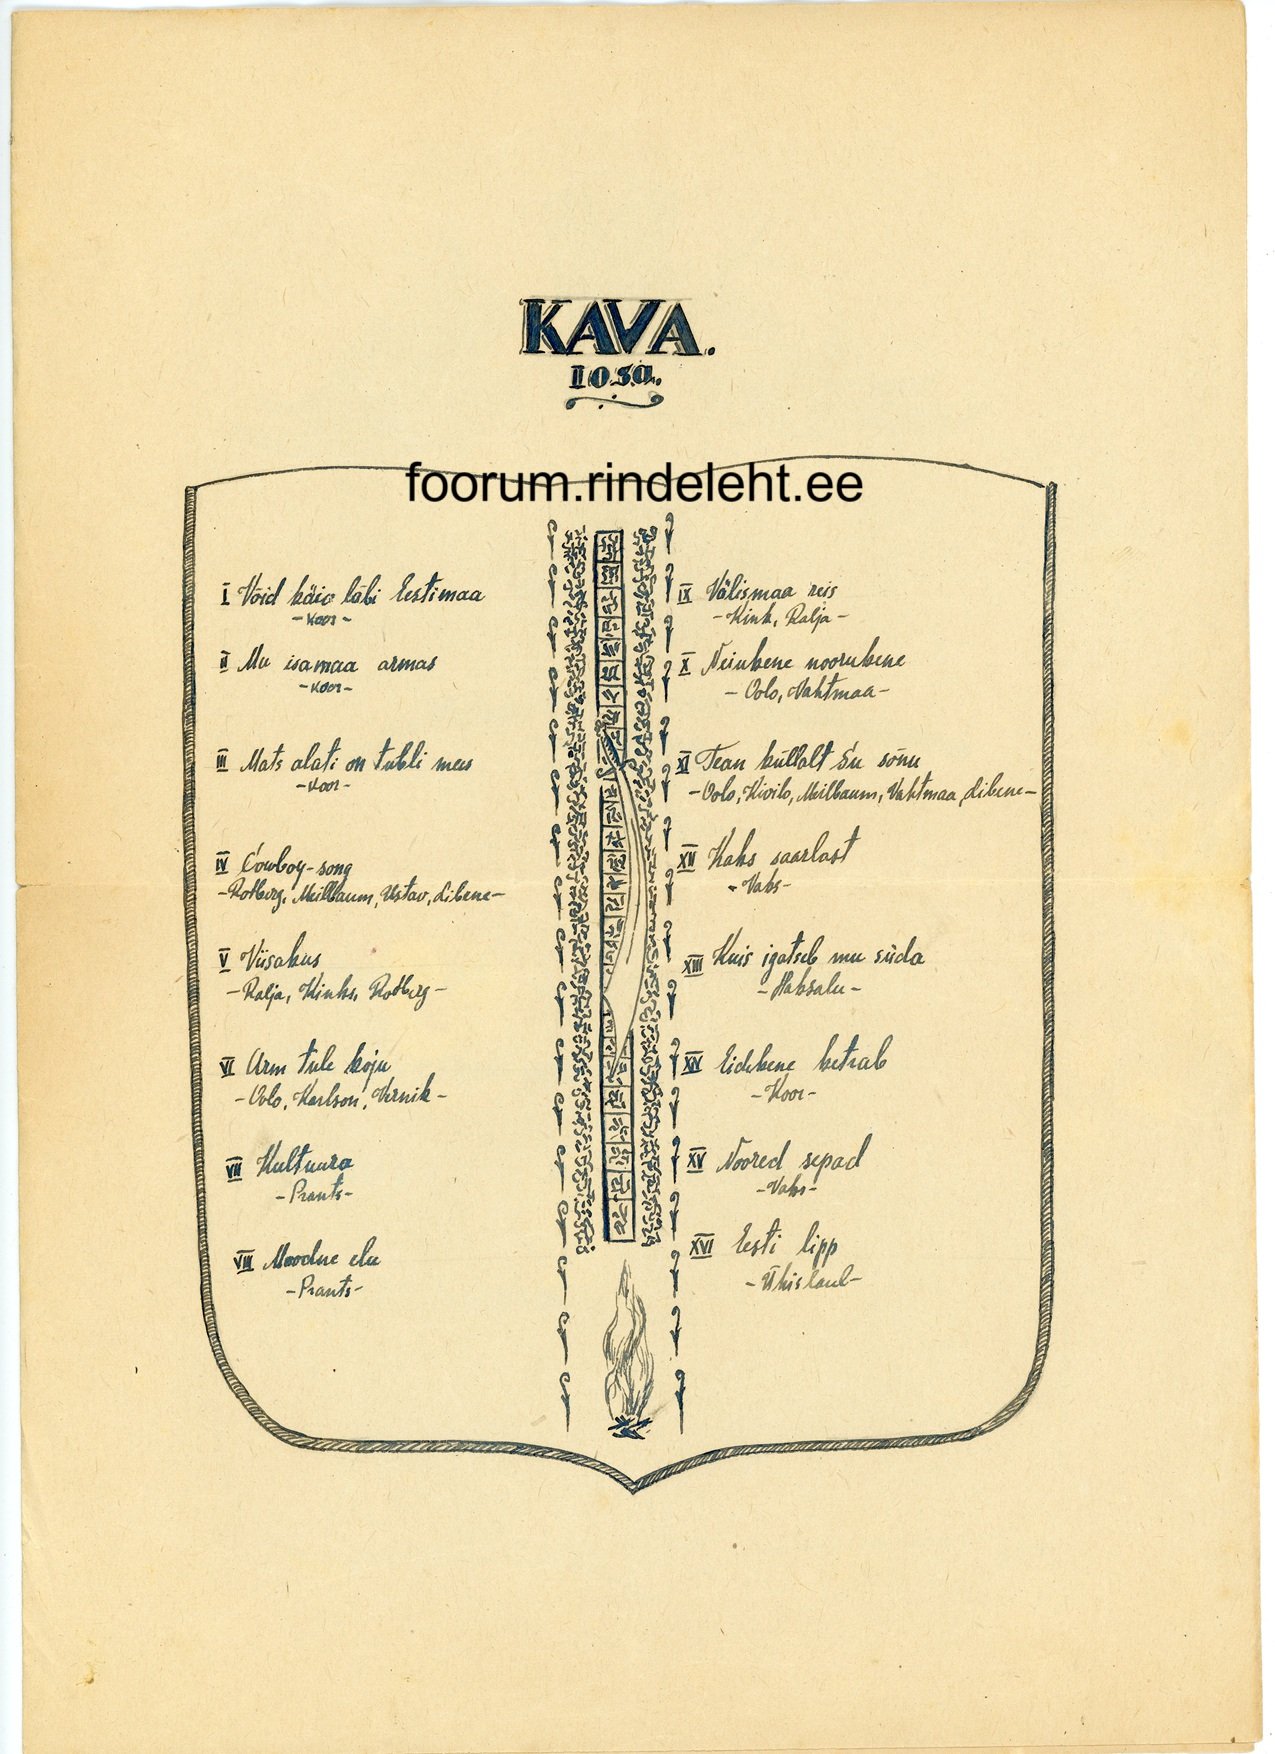 KAVA.
I osa.
foorum.rindeleht.ee
I Võid käia läbi Eestimaa
-Koor-
II Mu isamaa armas
-Koor-
III Mats alati on tubli mees
-Koor-
IV Cowboy-song
-Rotberg, Meilbaum, Ustav, Libene-
V Viisakus
-Ralja, Kinks, Rotberg-
VI Arm tule koju
-Oolo, Karlson, Kernik-
VII Kultuura
-Prants-
VIII Moodne elu
-Prants-
IX Välismaa reis
-Kink, Ralja-
X Neiukene noorukene
-Oolo, Vahtmaa-
XI Tean küllalt Su sõnu
-Oolo, Kivilo, Meilbaum, Vahtmaa, Libene-
XII Kaks saarlast
-Vaks-
XIII Kuis igatseb mu süda
-Haksalu-
XIV Eidekene ketrab
-Koor-
XV Noored sepad
-Vaks-
XVI Eesti lipp
-Ühislaul-